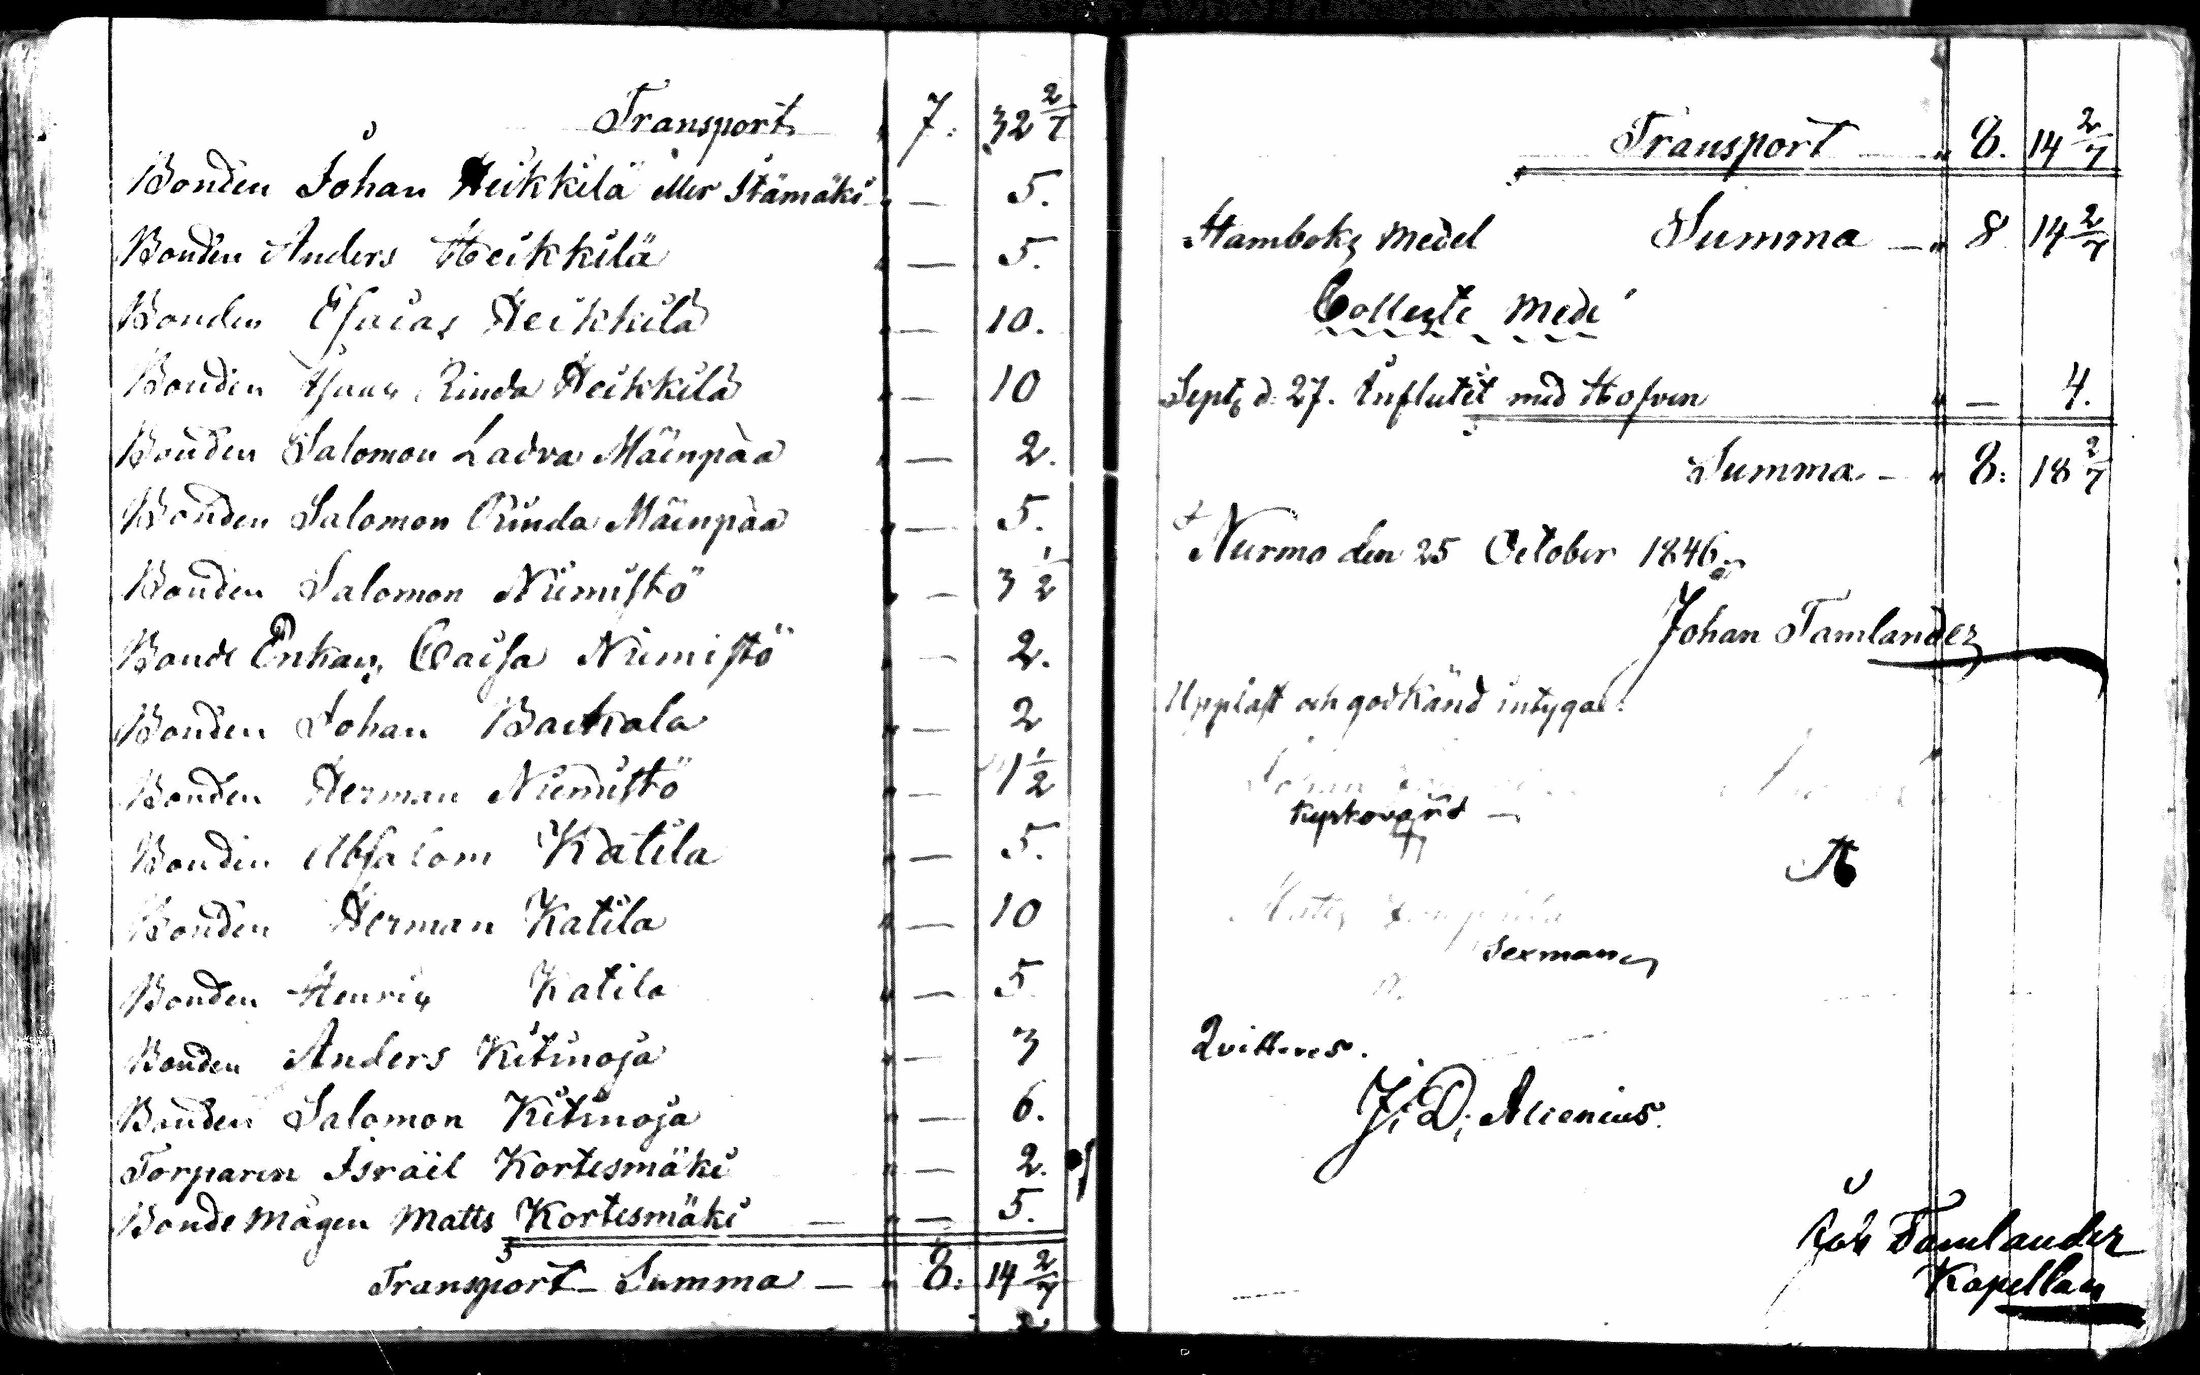 Transport " 7. 32 2/7
Bonden Johan Heikkilä eller Itämäki " — 5.
Bonden Anders Heikkilä " — 5.
Bonden Esaias Heikkilä " — 10.
Bonden Rinda Heikkilä " — 10
Bonden Salomon Ladva Mäenpää " — 2.
Bonden Salomon Rinda Mäenpää " — 5.
Bonden Salomon Niemistö " — 3 1/2
Bonde Enkan Caisa Niemistö " — 2.
Bonden Johan " — 2
Bonden Herman Niemistö " — 1 1/2
Bonden Absalom Katila " — 5.
Bonden Herman Katila " — 10
Bonden Henric Katila " — 5.
Bonden Anders Kitinoja " — 3
Bonden Salomon Kitinoja " — 6.
Torparen Israël Kortesmäki " — 2.
Bonde Mågen Matts Kortesmäki — " — 5.
Transport Summa — " 8. 14 2/7
Transport — " 8. 14 2/7
Stamboks Medel Summa — " 8 14 2/7
Collecte Medel
Sept. d. 27. Influtit med Hofven " — 4.
Summa — " 8: 18 2/7
Nurmo den 25 October 1846.
Johan Tamlander
Uppläst och godkänd intygar:
Johan
Kyrkovärd
Matts
Sexman
Qvitteres.
J. D. Alcenius.
Joh Tamlander
Kapellan